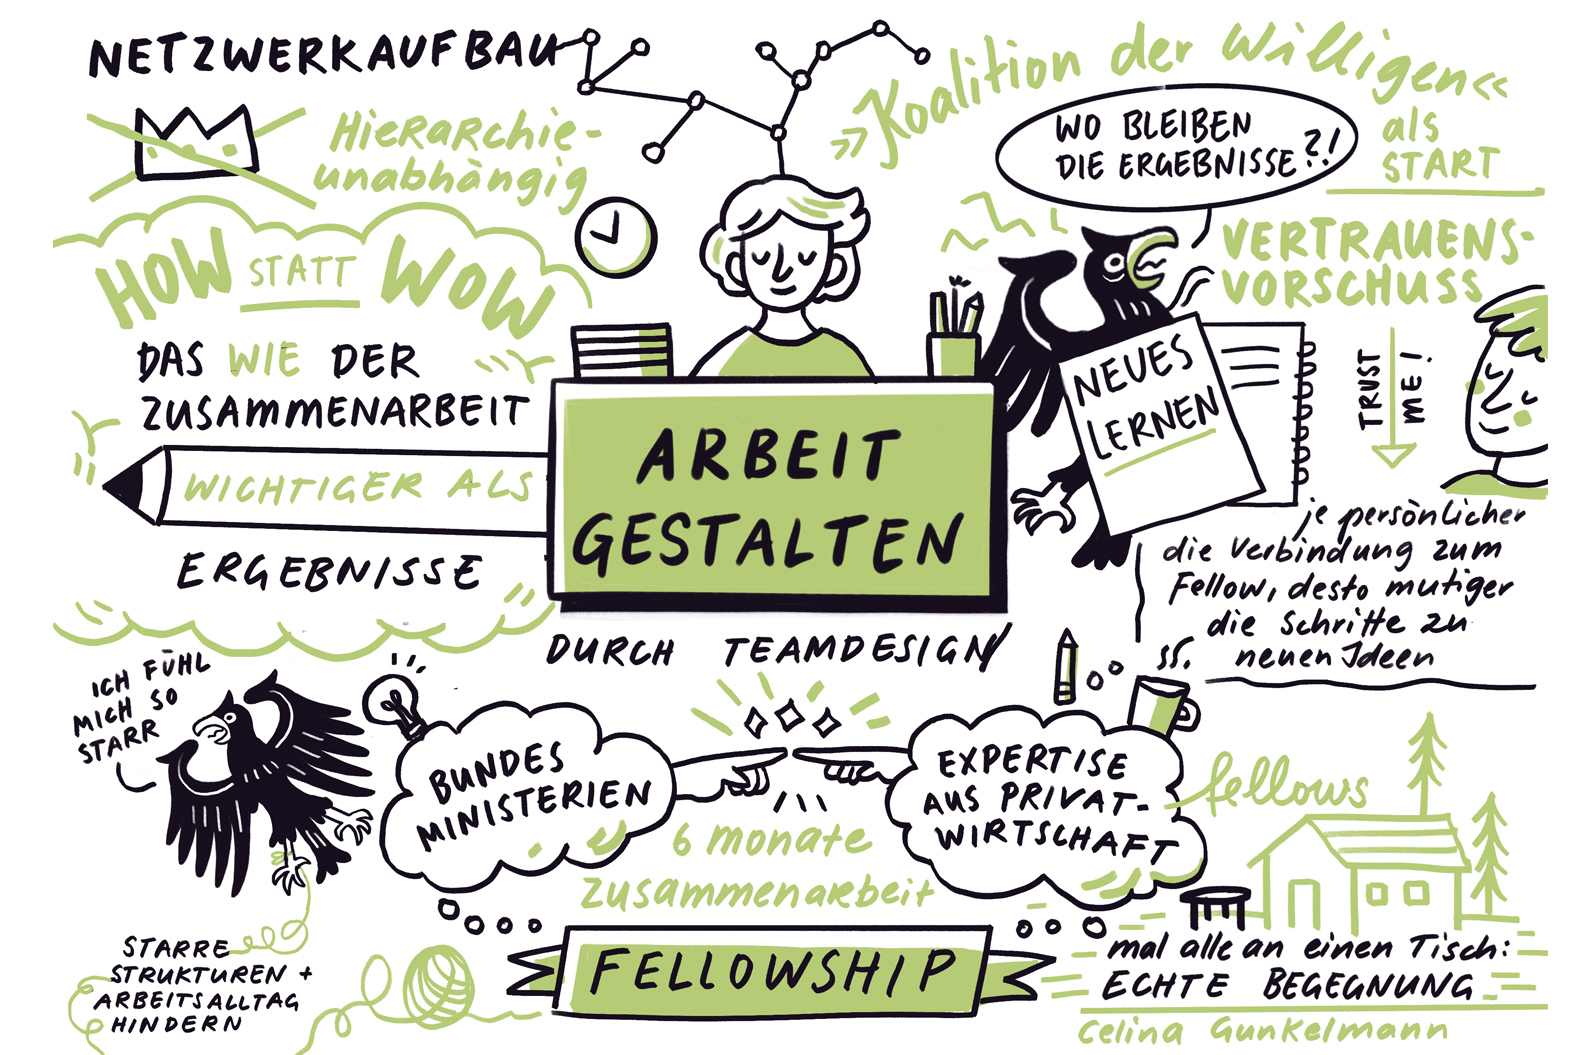 NETZWERKAUFBAU
HIERARCHIE-
unabhängig
HOW STATT WOW
DAS WIE DER
ZUSAMMENARBEIT
WICHTIGER ALS
ERGEBNISSE
»Koalition der Willigen«
als
START
WO BLEIBEN
DIE ERGEBNISSE?!
VERTRAUENS-
VORSCHUSS
NEUES
LERNEN
TRUST
ME!
je persönlicher
die Verbindung zum
Fellow, desto mutiger
die Schritte zu
neuen Ideen
ARBEIT
GESTALTEN
DURCH TEAMDESIGN
ICH FÜHL
MICH SO
STARR
BUNDES
MINISTERIEN
EXPERTISE
AUS PRIVAT-
WIRTSCHAFT
6 monate
zusammenarbeit
FELLOWSHIP
fellows
STARRE
STRUKTUREN +
ARBEITSALLTAG
HINDERN
mal alle an einen Tisch:
ECHTE BEGEGNUNG
Celina Gunkelmann